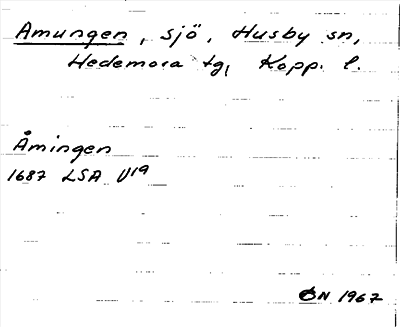 Amungen, sjö, Husby sn,
Hedemora tg, Kopp. l.
Åmingen
1687 LSA U19
ÖN 1967